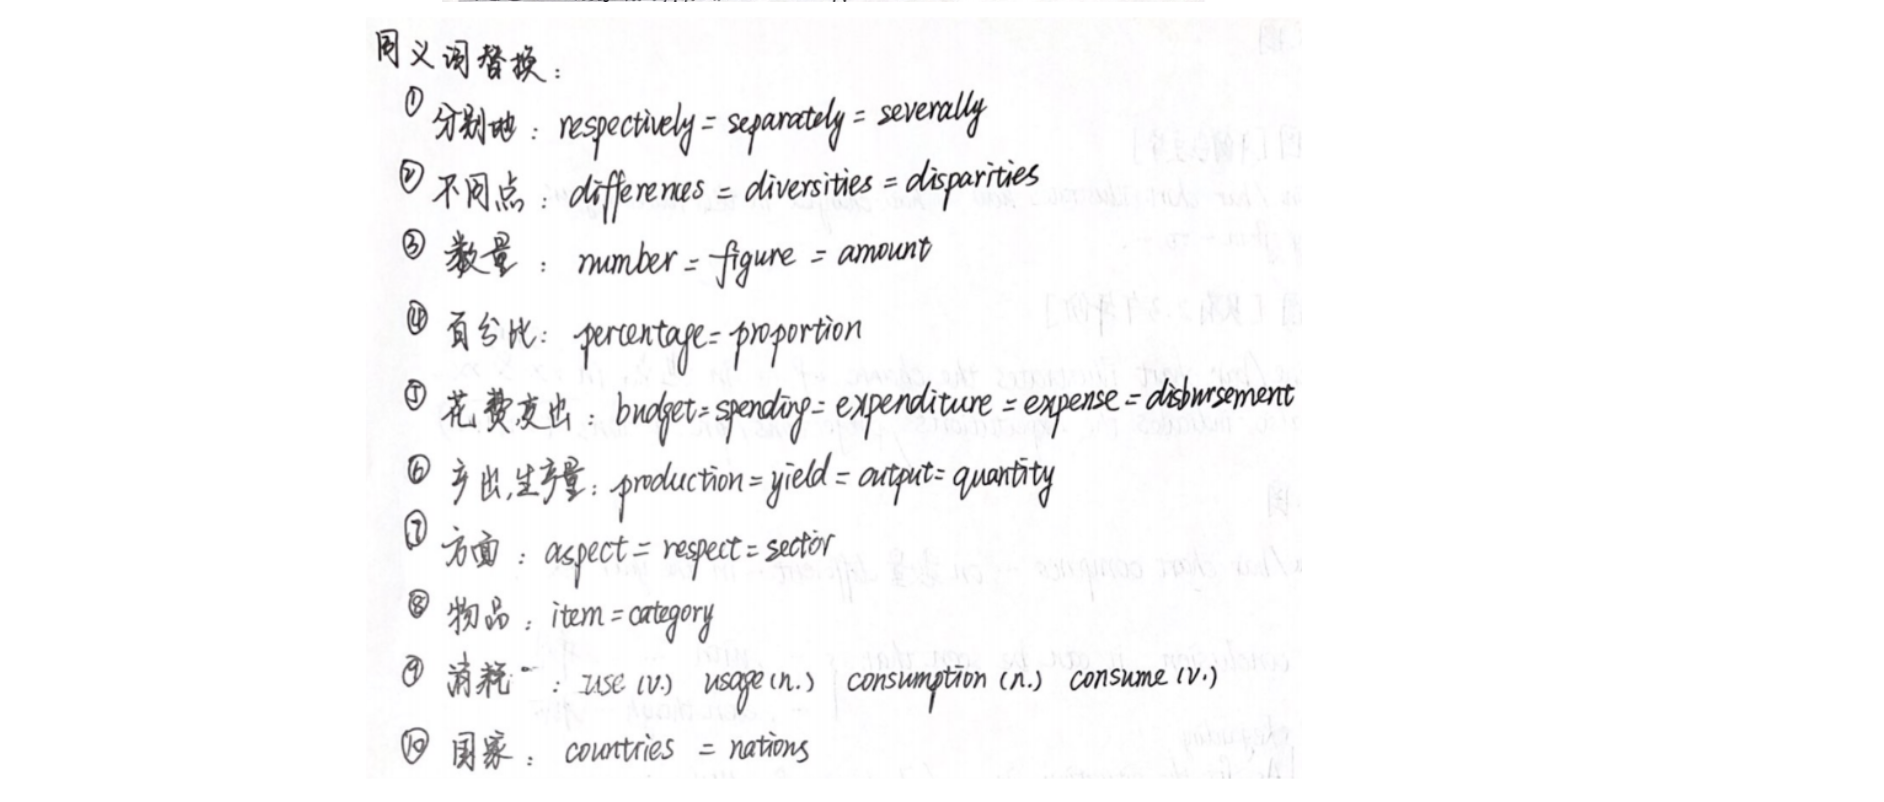 同义词替换：
① 分别地：respectively = separately = severally
② 不同点：differences = diversities = disparities
③ 数量：number = figure = amount
④ 百分比：percentage = proportion
⑤ 花费，支出：budget = spending = expenditure = expense = disbursement
⑥ 产出，生产量：production = yield = output = quantity
⑦ 方面：aspect = respect = sector
⑧ 物品：item = category
⑨ 消耗：use (v.) usage (n.) consumption (n.) consume (v.)
⑩ 国家：countries = nations